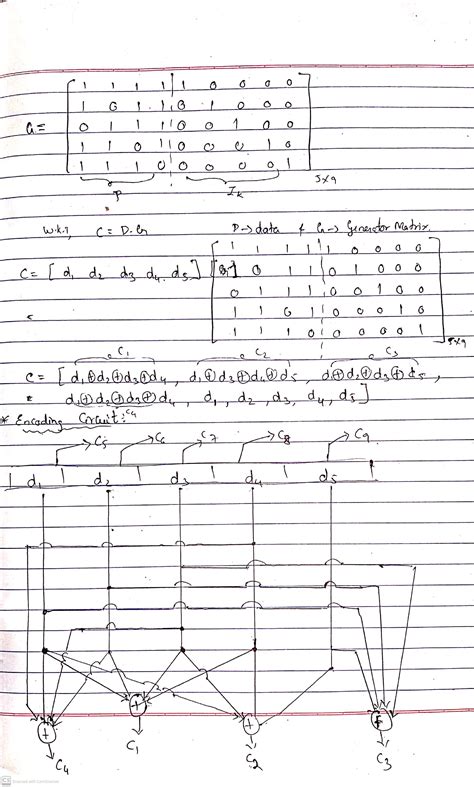 G =
1 1 1 1 1 0 0 0 0
1 0 1 1 0 1 0 0 0
0 1 1 1 0 0 1 0 0
1 1 0 1 0 0 0 1 0
1 1 1 0 0 0 0 0 1
5x9
P Ik
w.k.t, C = D.G D → data & G → Generator Matrix.
C = [ d1 d2 d3 d4 d5 ]
1 1 1 1 1 0 0 0 0
0 1 1 0 1 0 0 0
0 1 1 1 0 0 1 0 0
1 1 0 1 0 0 0 1 0
1 1 1 0 0 0 0 0 1
5x9
C1 C2 C3
C = [ d1⊕d2⊕d4⊕, d1⊕d3⊕d4⊕d5, d1⊕d2⊕d3⊕d5,
d1⊕d2⊕d3⊕d4, d1, d2, d3, d4, d5 ]
* Encoding Circuit: C4
C5 C6 C7 C8 C9
d1 d2 d3 d4 d5
+ + + +
C4 C1 C2 C3
CS Scanned with CamScanner